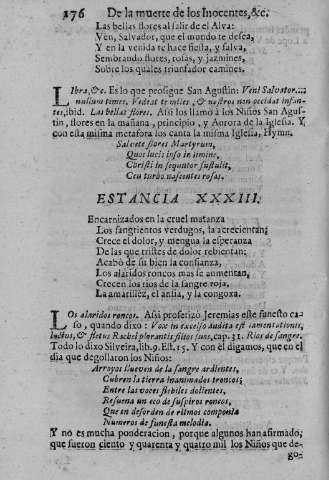 176 De la muerte de los Inocentes, &c.
Las bellas flores al salir de el Alva:
Ven, Salvador, que el mundo te desea,
Y en la venida te hace fiesta, y salva,
Sembrando flores, rosas, y jazmines,
Sobre los quales triunfador camines.
Libra, &c. Es lo que prosigue San Agustin: Veni Salvator...
nullum timet. Vedeat te miles, & nostros non occidat infan-
tes, ibid. Las bellas flores. Assi los llamò à los Niños San Agus-
tin, flores en la mañana, principio, y Aurora de la Iglesia. Y
con esta misma metafora los canta la misma Iglesia, Hymn.
Salvete flores Martyrum,
Quos lucis ipso in limine,
Christi insequutor sustulit,
Ceu turbo nascentes rosas.
ESTANCIA XXXIII.
Encarnizados en la cruel matanza
Los sangrientos verdugos, la acrecientan;
Crece el dolor, y mengua la esperanza
De las que tristes de dolor rebientan;
Acabò de su bien la confianza,
Los alaridos roncos mas se aumentan,
Crecen los rios de la sangre roja,
La amarillèz, el ansia, y la congoxa.
Los alaridos roncos. Assi profetizò Jeremias este funesto ca-
so, quando dixo: Vox in excelso audita est lamentationis,
luctus, & fletus Rachel plorantis filios suos, cap. 31. Rios de sangre.
Todo lo dixo Silveira, lib. 9. Est. 15. Y con èl digamos, que en el
dia que degollaron los Niños:
Arroyos llueven de la sangre ardientes,
Cubren la tierra inanimados troncos;
Entre las voces flebiles dolientes,
Resuena un eco de suspiros roncos,
Que en desorden de ritmos componia
Numeros de funesta melodia.
Y no es mucha ponderacion, porque algunos han afirmado,
que fueron ciento y quarenta y quatro mil los Niños que de-
go-